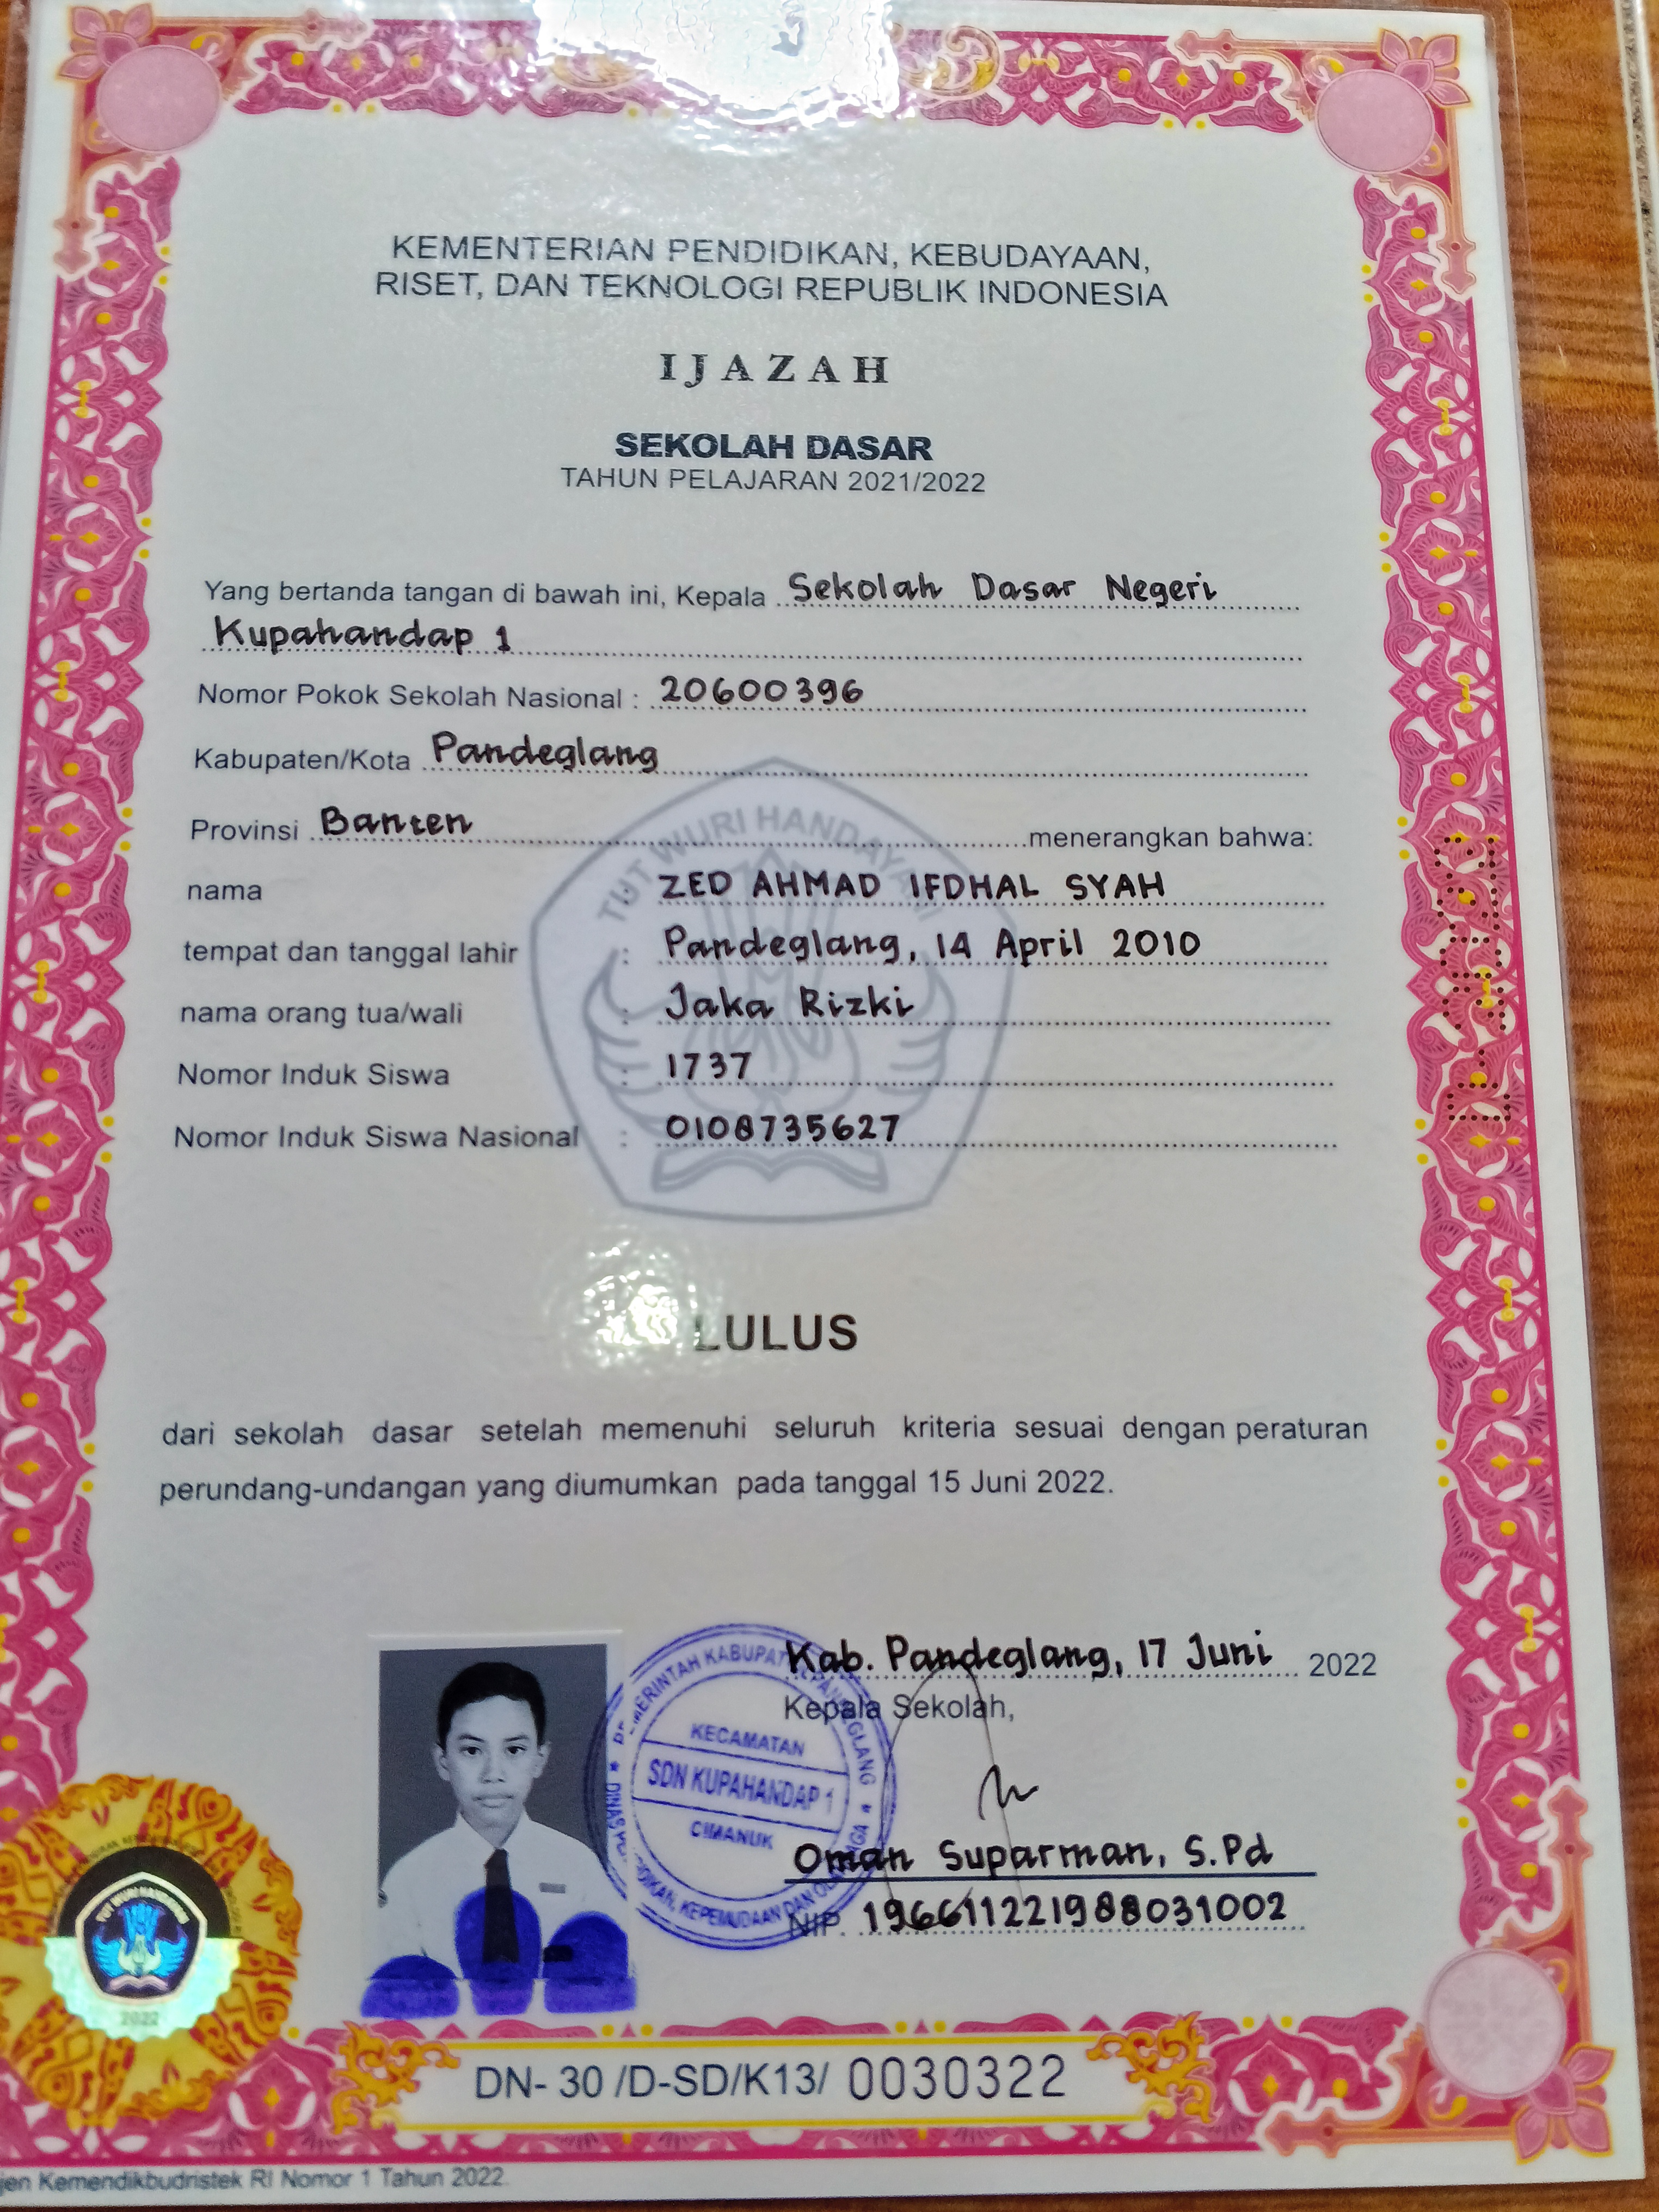 KEMENTERIAN PENDIDIKAN, KEBUDAYAAN,
RISET, DAN TEKNOLOGI REPUBLIK INDONESIA
IJAZAH
SEKOLAH DASAR
TAHUN PELAJARAN 2021/2022
Yang bertanda tangan di bawah ini, Kepala Sekolah Dasar Negeri
Kupahandap 1
Nomor Pokok Sekolah Nasional : 20600396
Kabupaten/Kota Pandeglang
Provinsi Banten menerangkan bahwa:
TUT WURI HANDAYANI
nama : ZED AHMAD IFDHAL SYAH
tempat dan tanggal lahir : Pandeglang, 14 April 2010
nama orang tua/wali : Jaka Rizki
Nomor Induk Siswa : 1737
Nomor Induk Siswa Nasional : 0108735627
LULUS
dari sekolah dasar setelah memenuhi seluruh kriteria sesuai dengan peraturan
perundang-undangan yang diumumkan pada tanggal 15 Juni 2022.
Kab. Pandeglang, 17 Juni 2022
Kepala Sekolah,
KECAMATAN
SDN KUPAHANDAP 1
CIMANUK
Oman Suparman, S.Pd
NIP. 196611221988031002
TUT WURI HANDAYANI
2022
DN- 30 /D-SD/K13/ 0030322
Kemendikbudristek RI Nomor 1 Tahun 2022.